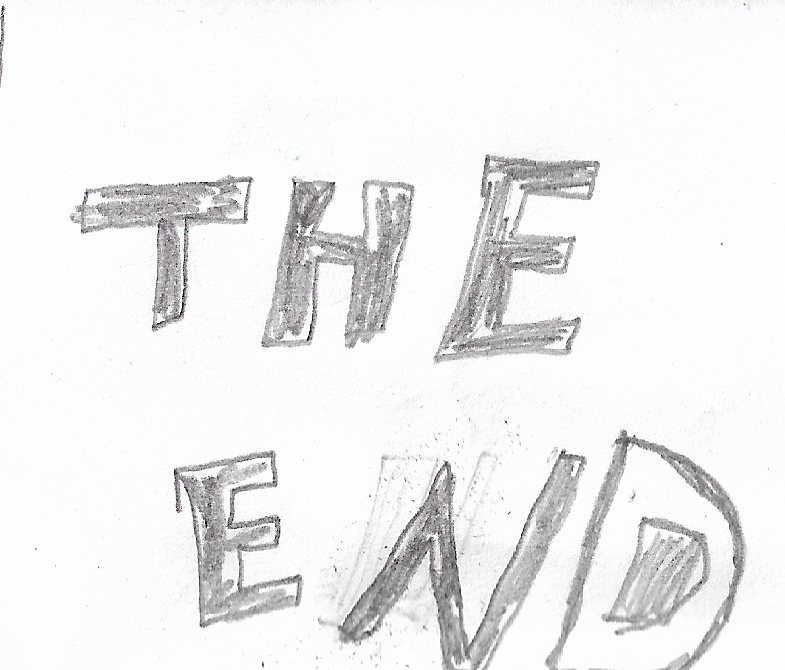 THE
END